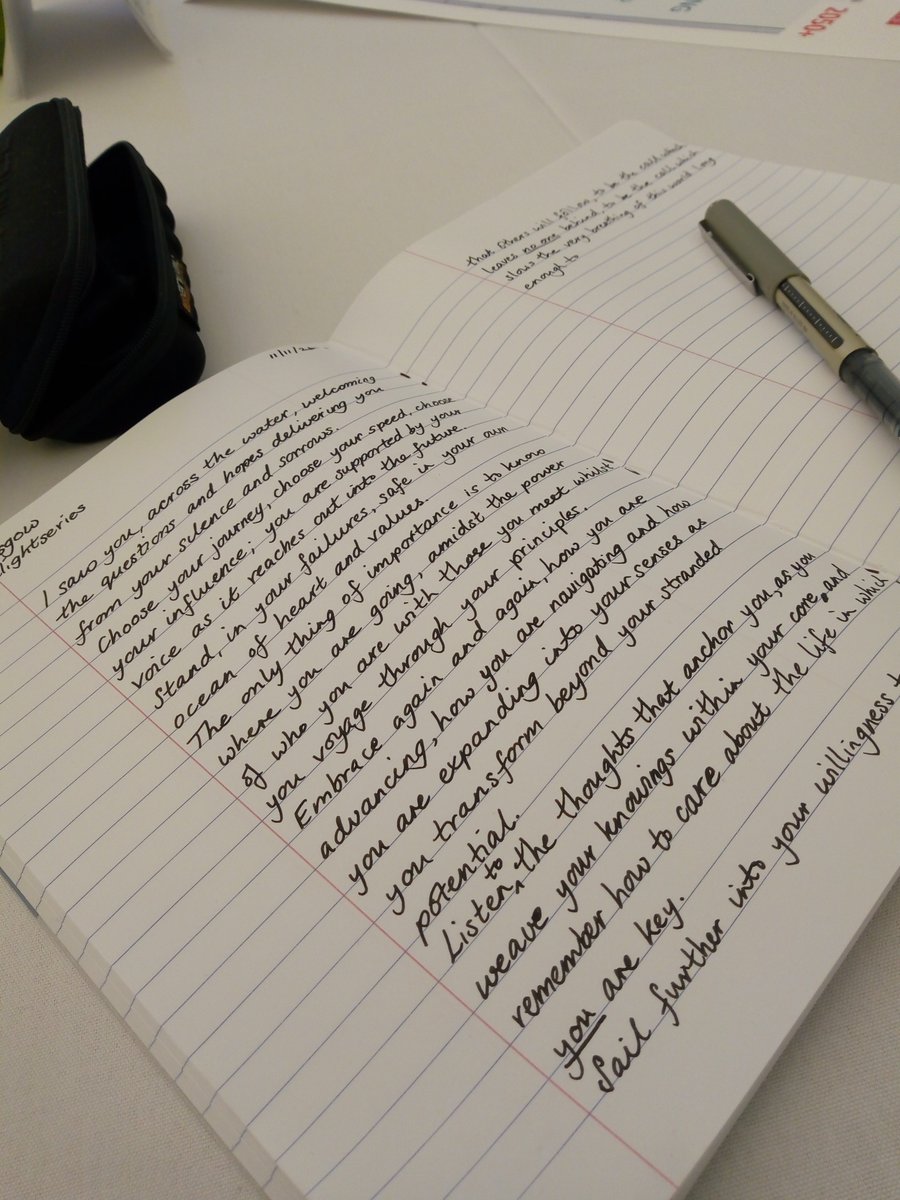 2050+
11/11/2
lightseries
I saw you, across the water, welcoming
the questions and hopes delivering you
from your silence and sorrows.
Choose your journey, choose your speed, choose
your influence; you are supported by your
voice as it reaches out into the future.
Stand, in your failures, safe in your own
ocean of heart and values.
The only thing of importance is to know
where you are going, amidst the power
of who you are with those you meet whilst
you voyage through your principles.
Embrace again and again, how you are
advancing, how you are navigating and how
you are expanding into your senses as
you transform beyond your stranded
potential.
Listen to the thoughts that anchor you, as you
weave your knowings within your core, and
remember how to care about the life in which
you are key.
Sail further into your willingness
that others will follow, to be the call which
leaves no one behind, to be the call which
slows the very breathing of this world long
enough to